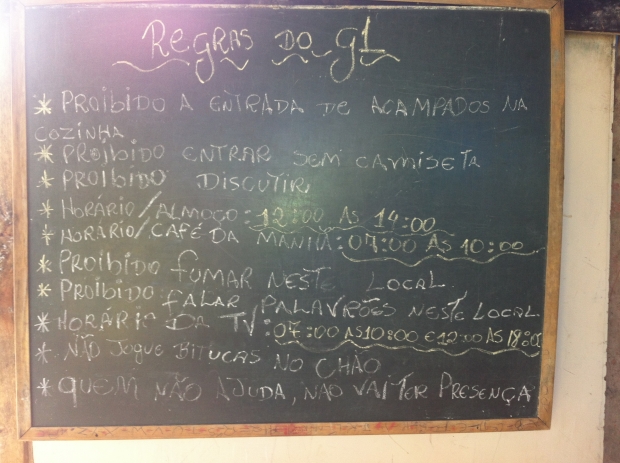 Regras do GL
* Proibido a entrada de acampados na
cozinha
* Proibido entrar sem camiseta
* Proibido discutir
* Horário/almoço: 12:00 às 14:00
* Horário/café da manhã: 07:00 às 10:00
* Proibido fumar neste local
* Proibido falar palavrões neste local
* Horário da TV: 07:00 às 10:00 e 12:00 às
* Não jogue bitucas no chão
* Quem não ajuda, não vai ter presença